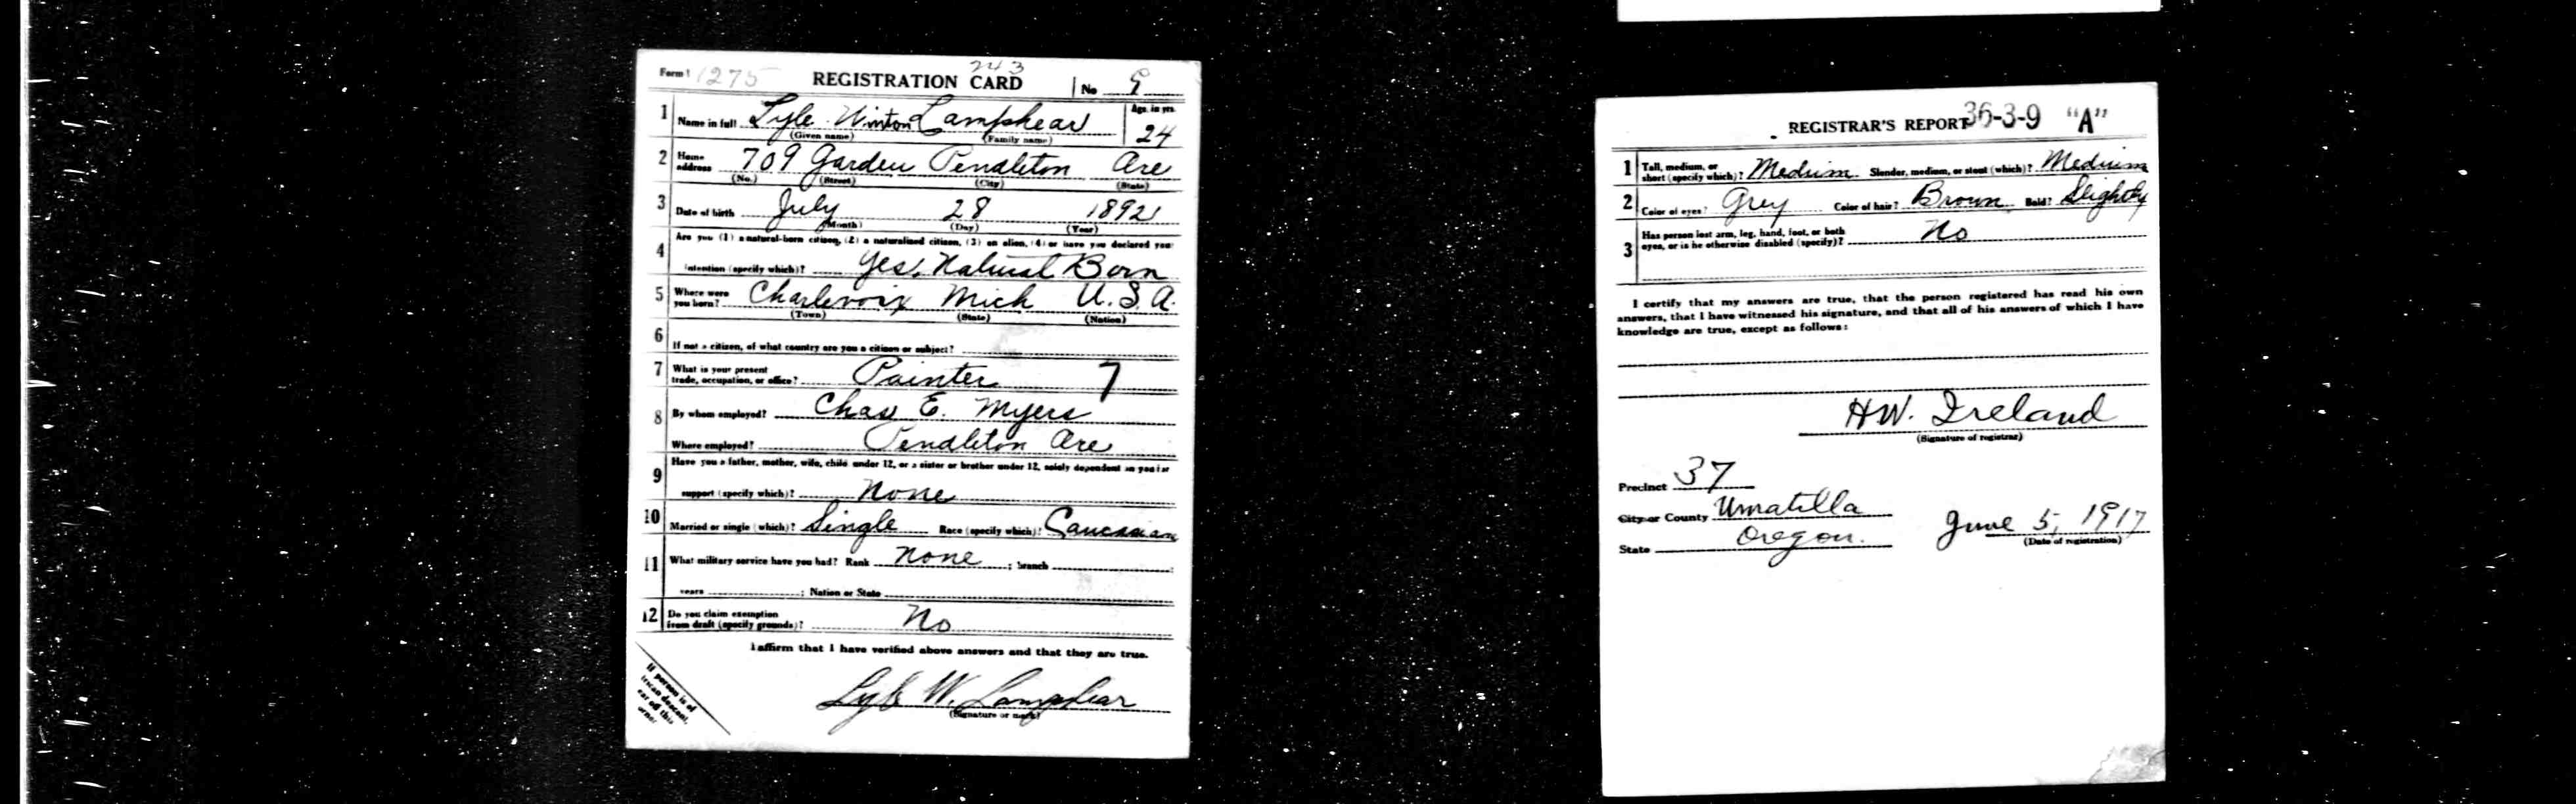 Form 1 1275 REGISTRATION CARD 243 No 9
1 Name in full Lyle Winton Lamphear Age, in yrs. 24
(Given name) (Family name)
2 Home address 709 Garden Pendleton Ore
(No.) (Street) (City) (State)
3 Date of birth July 28 1892
(Month) (Day) (Year)
4 Are you (1) a natural-born citizen, (2) a naturalized citizen, (3) an alien, (4) or have you declared your
intention (specify which)? Yes, Natural Born
5 Where were you born? Charlevoix Mich U.S.A.
(Town) (State) (Nation)
6 If not a citizen, of what country are you a citizen or subject?
7 What is your present trade, occupation, or office? Painter 7
8 By whom employed? Chas E. Myers
Where employed? Pendleton Ore
9 Have you a father, mother, wife, child under 12, or a sister or brother under 12, solely dependent on you for
support (specify which)? None
10 Married or single (which)? Single Race (specify which)? Caucasian
11 What military service have you had? Rank None ; branch ;
years ; Nation or State
12 Do you claim exemption from draft (specify grounds)? No
I affirm that I have verified above answers and that they are true.
Lyle W. Lamphear
(Signature or mark)
If person is of
descent,
off this
REGISTRAR'S REPORT 36-3-9 "A"
1 Tall, medium, or short (specify which)? Medium Slender, medium, or stout (which)? Medium
2 Color of eyes? Grey Color of hair? Brown Bald? Slightly
3 Has person lost arm, leg, hand, foot, or both eyes, or is he otherwise disabled (specify)? No
I certify that my answers are true, that the person registered has read his own
answers, that I have witnessed his signature, and that all of his answers of which I have
knowledge are true, except as follows:
HW. Ireland
(Signature of registrar)
Precinct 37
City or County Umatilla
State Oregon. June 5, 1917
(Date of registration)